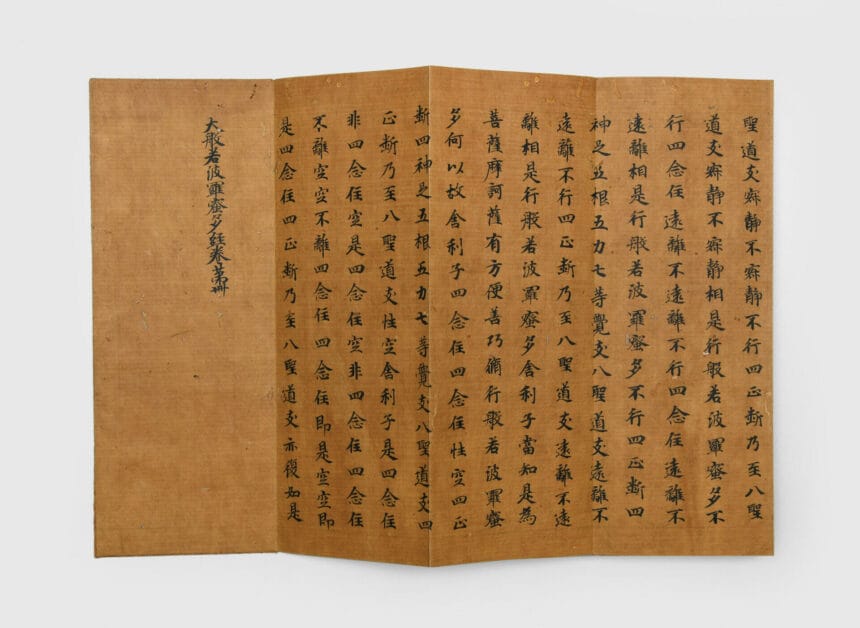 聖道支寂静不寂静不行四正断乃至八聖
道支寂静不寂静相是行般若波羅蜜多不
行四念住遠離不遠離不行四念住遠離不
遠離相是行般若波羅蜜多不行四正断四
神足五根五力七等覺支八聖道支遠離不
遠離不行四正断乃至八聖道支遠離不遠
離相是行般若波羅蜜多舍利子當知是為
菩薩摩訶薩有方便善巧脩行般若波羅蜜
多何以故舍利子四念住四念住性空四正
断四神足五根五力七等覺支八聖道支四
正断乃至八聖道支性空舍利子是四念住
非四念住空是四念住空非四念住四念住
不離空空不離四念住四念住即是空空即
是四念住四正断乃至八聖道支亦復如是
大般若波羅蜜多經卷第卌